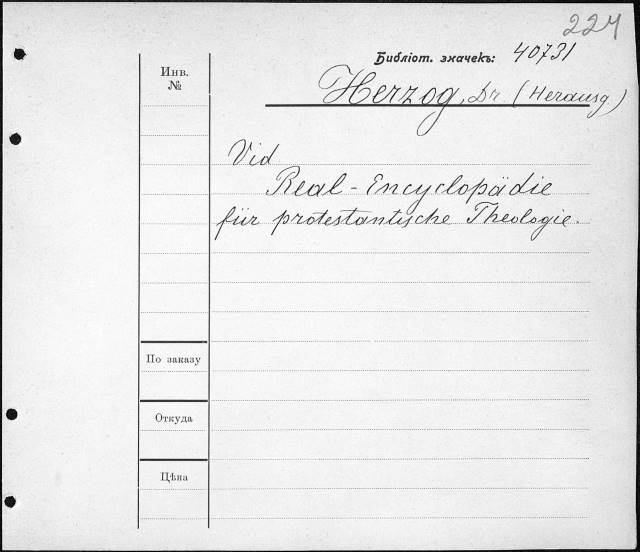 224
Библіот. значекъ: 40731
Инв.
№
Herzog, Dr. (Herausg.)
Vid
Real-Encyclopädie
für protestantische Theologie.
По заказу
Откуда
Цѣна